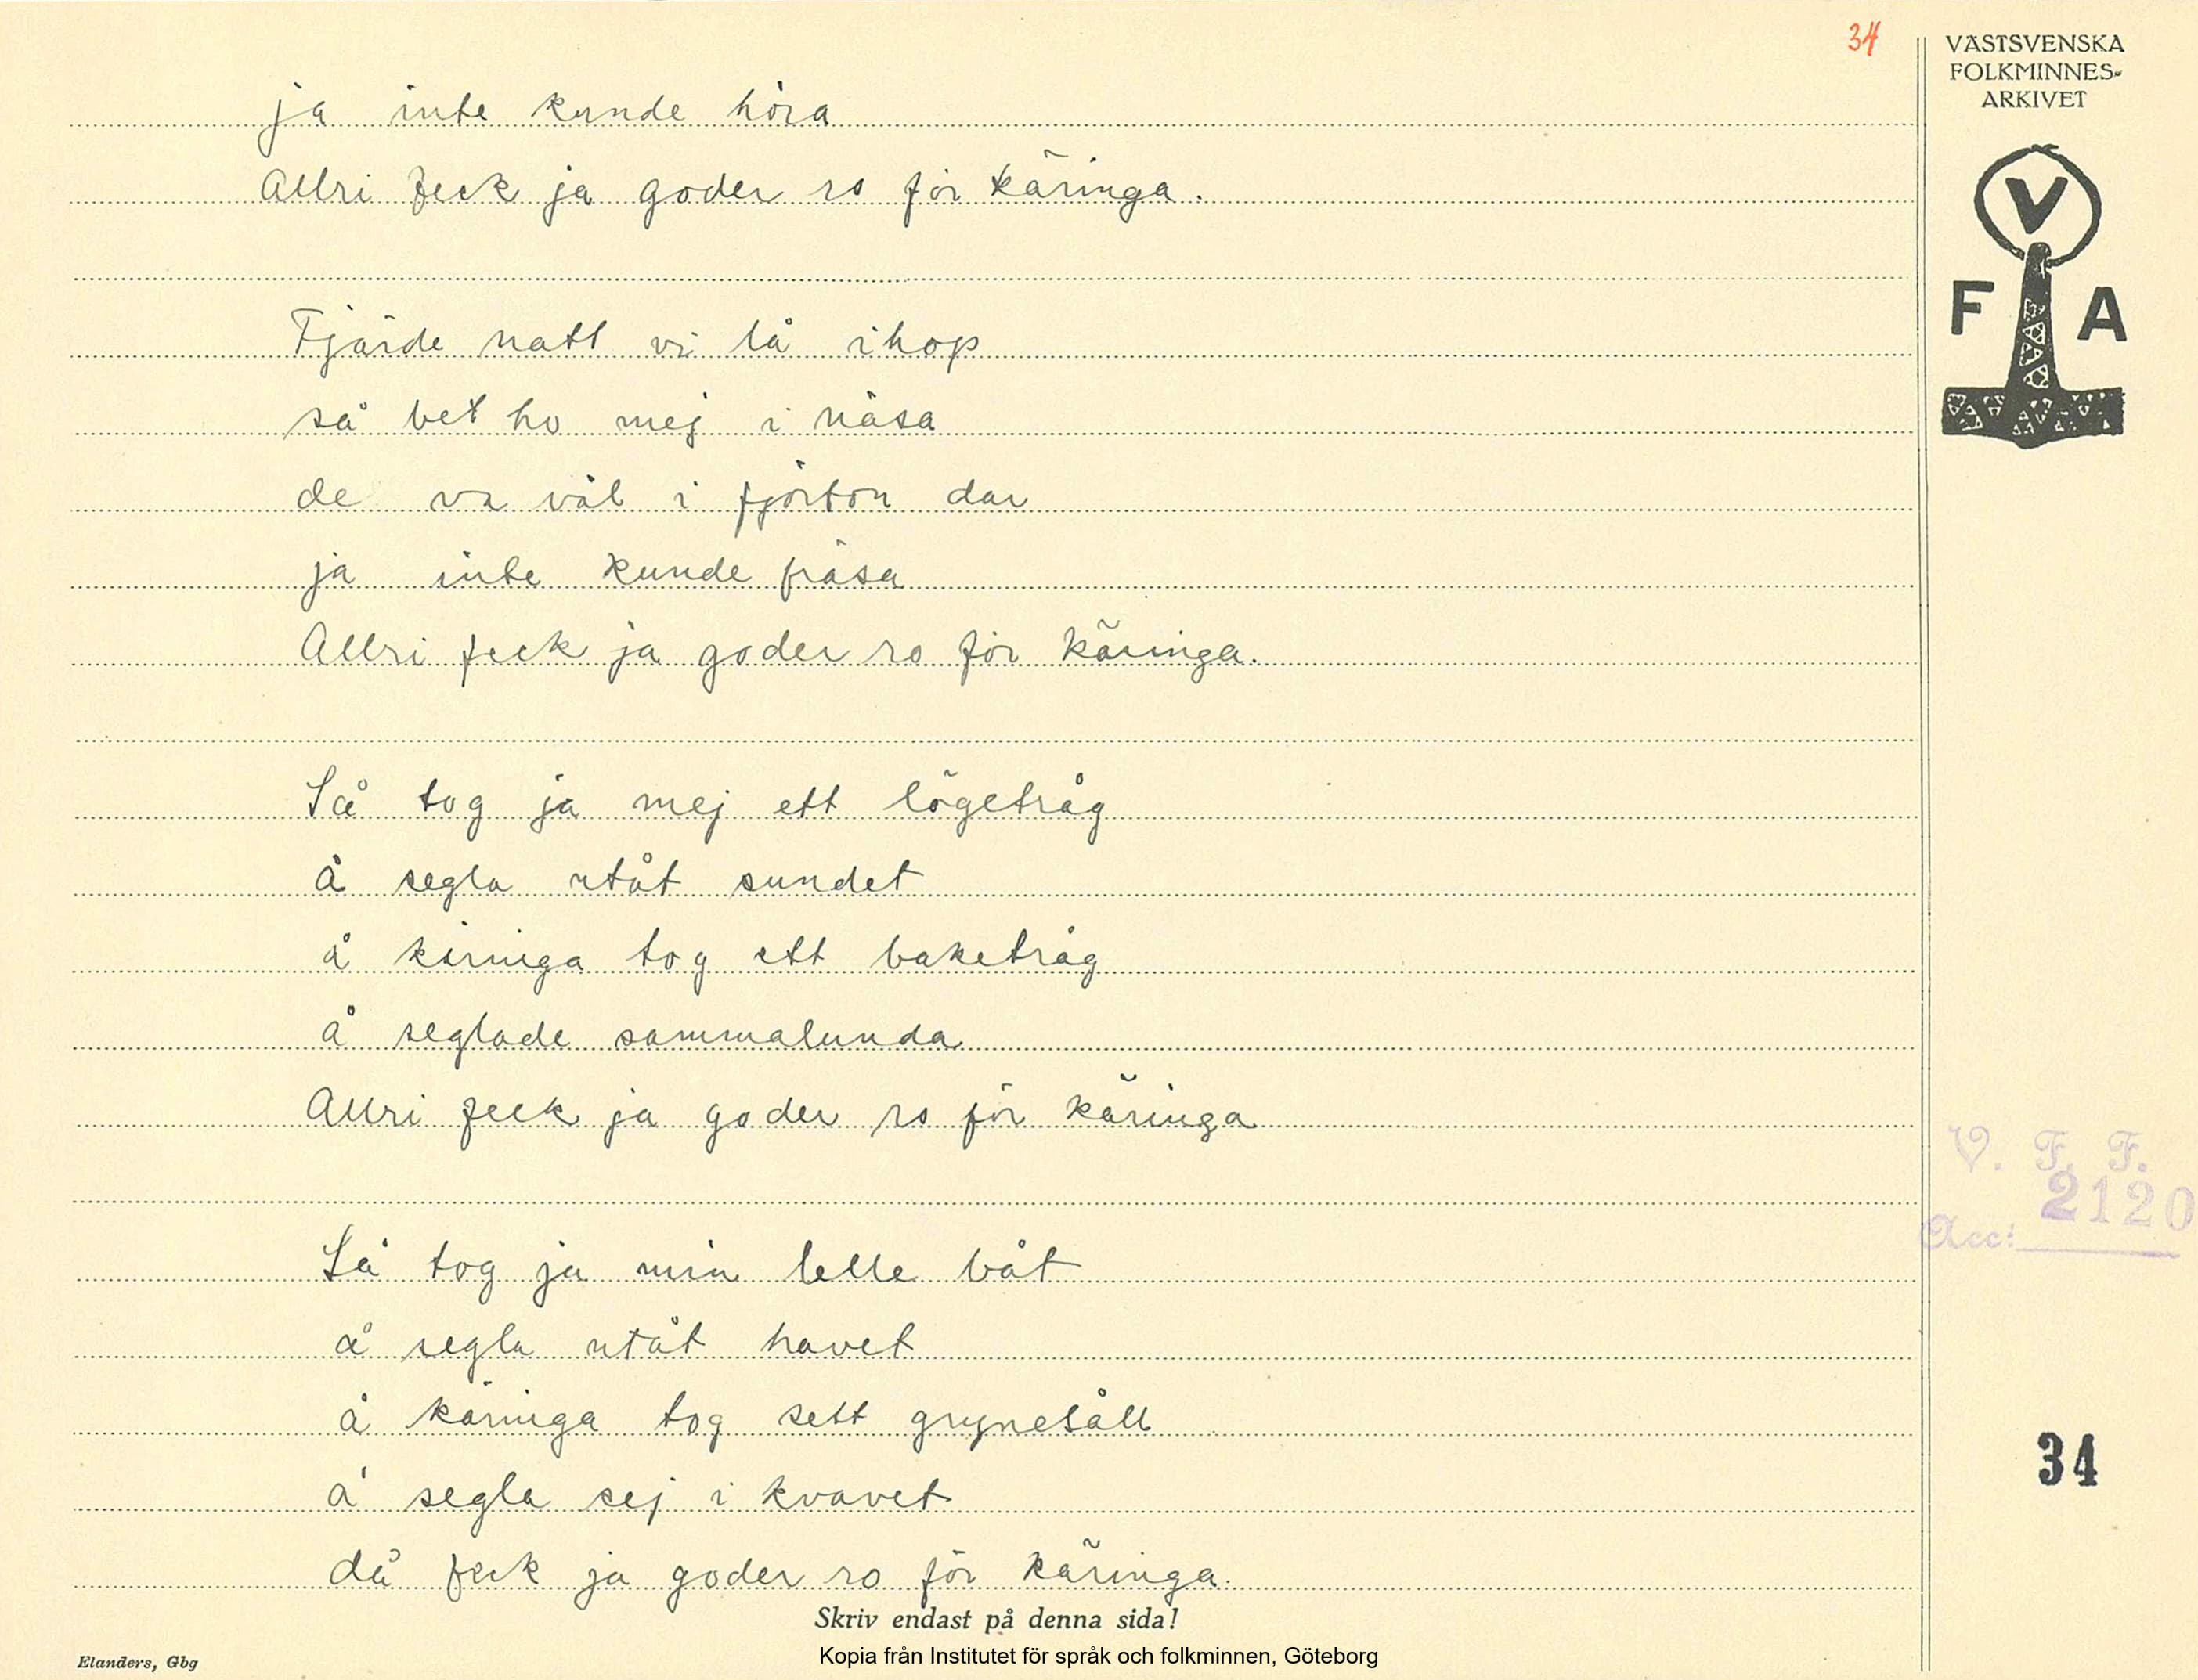 34
VÄSTSVENSKA
FOLKMINNES-
ARKIVET
V
F A
ja inte kunde höra
Allri feck ja goder ro för käringa.
Fjärde natt vi lå ihop
så bet ho mej i näsa
de va väl i fjorton dar
ja inte kunde fräsa
Allri feck ja goder ro för käringa.
Så tog ja mej ett lögetråg
å segla utåt sundet
å käringa tog ett baketråg
å seglade sammalunda
Allri feck ja goder ro för käringa
Så tog ja min lelle båt
å segla utåt havet
å käringa tog sett grynesåll
å segla sej i kvavet
då feck ja goder ro för käringa.
V. F. F.
Acc: 2120
34
Skriv endast på denna sida!
Kopia från Institutet för språk och folkminnen, Göteborg
Elanders, Gbg